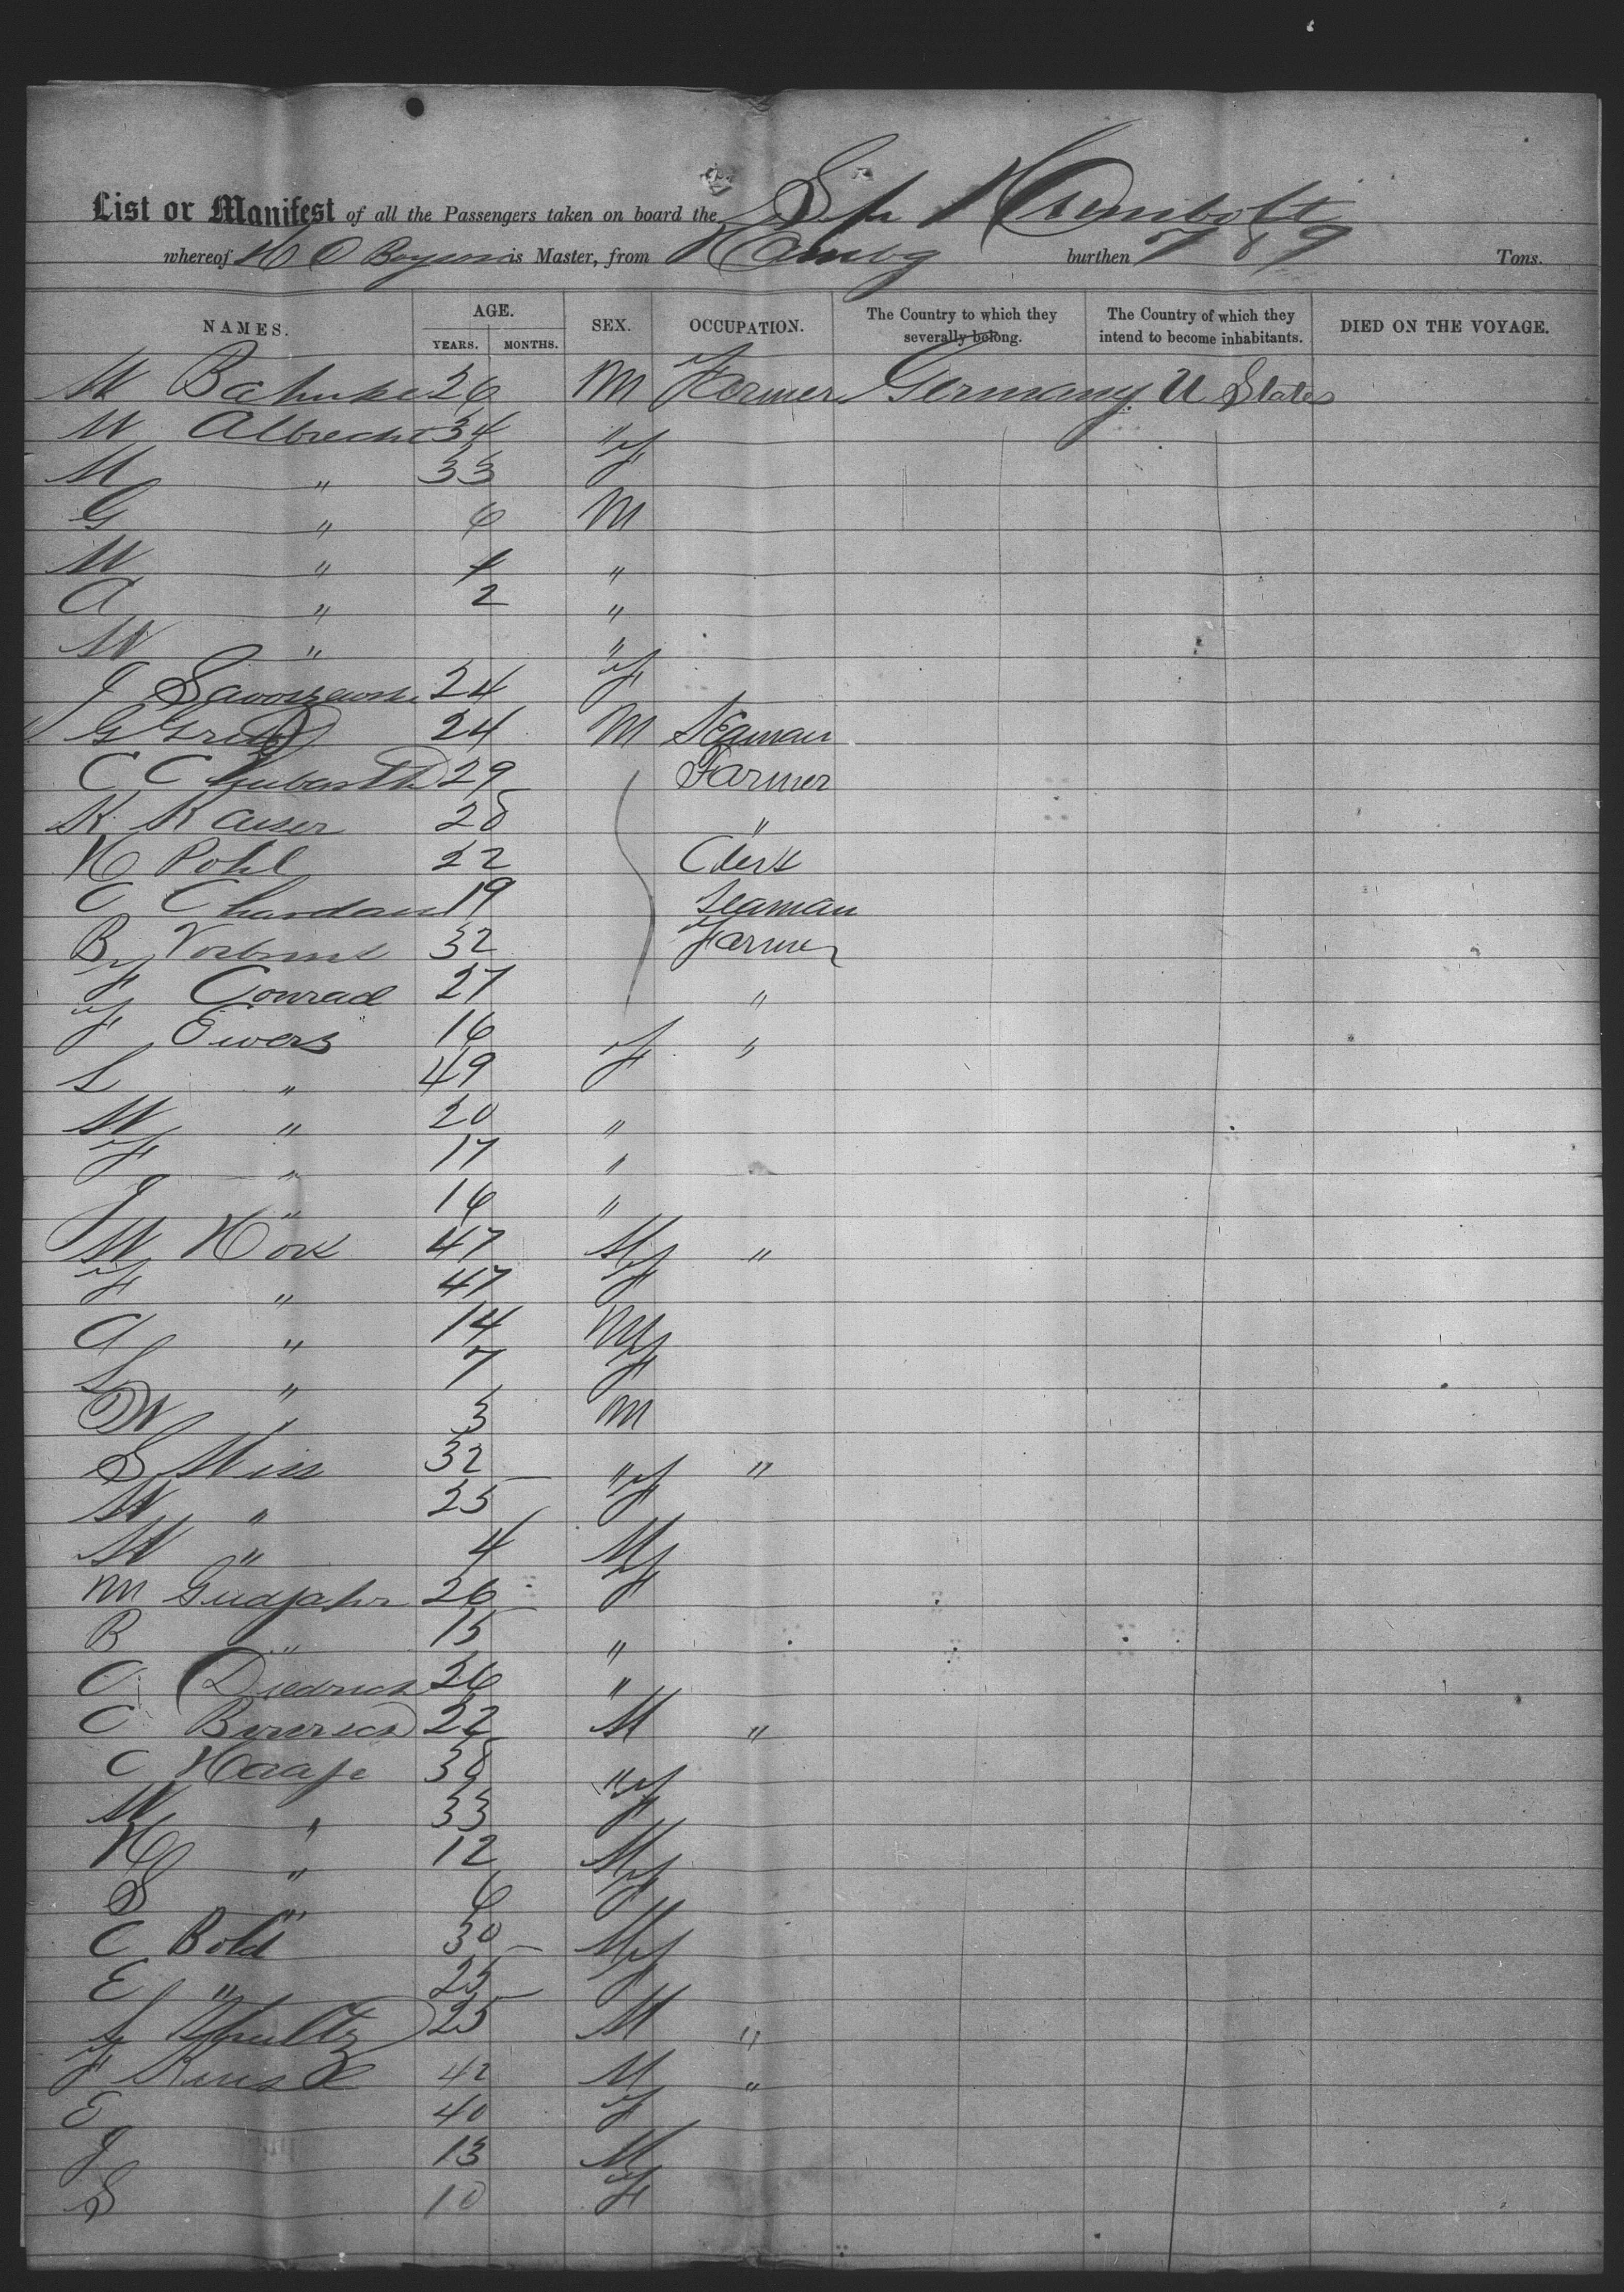 List or Manifest of all the Passengers taken on board the Ship Humbolt
whereof H O is Master, from Hambg burthen 789 Tons.
NAMES. AGE. YEARS. MONTHS. SEX. OCCUPATION. The Country to which they severally belong. The Country of which they intend to become inhabitants. DIED ON THE VOYAGE.
W Bahnke 26 M Farmer Germany U States
W Albrecht 34 "
M " 33 f
G " 6 M
W " "
A " 2 "
W " "
J 24 f
G 24 M Seaman
C 29 Farmer
K Kaiser 28 "
H Pohl 22 Clerk
C 19 Seaman
B 32 Farmer
F Conrad 27 "
F Ewers 16 "
L " 49 f
W " 20 "
F " 17 "
J " 16 "
W Hork 47 M "
F " 47 f
A " 14 M
L " 7 f
W 3 M
S 32 " "
W " 25 f
W " 4 M
M Gudjahr 26 f
B " 15 "
C Diedrich 26 "
C 22 M "
C Haase 38 "
W " 33 f
H " 12 M
S " 6 f
C Bold 30 M
E " 25 f
Shultz 25 M "
F 42 M "
E 40 f
J 13 M
S 10 f